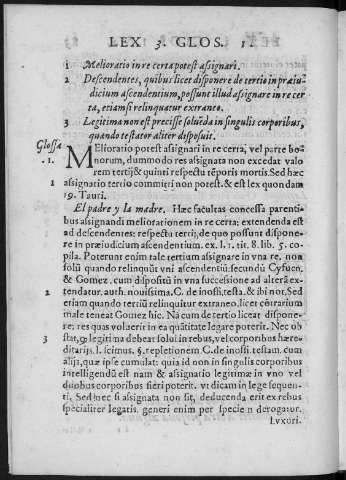 LEX 3. GLOS. 1.
1 Melioratio in re certa potest assignari.
2 Descendentes, quibus licet disponere de tertio in præiu-
dicium ascendentium, possunt illud assignare in re cer
ta, etiam si relinquatur extraneo.
3 Legitima non est precisse soluēda in singulis corporibus,
quando testator aliter disposuit.
Glossa
.1.
MElioratio potest assignari in re certa, vel parte bo-
norum, dummodo res assignata non excedat valo
rem tertij & quinti respectu tēporis mortis. Sed hæc
1 assignatio tertio committi non potest. & est lex quon dam
19. Tauri.
El padre y la madre. Hæc facultas concessa parenti-
bus assignandi meliorationem in re certa: extendenda est
ad descendentes: respectu tertij, de quo possunt dispone-
re in præiudicium ascendentium. ex. l. 1. tit. 8. lib. 5. co-
pila. Poterunt enim tale tertium assignare in vna re. non
solū quando relinquūt vni ascendentiū secundū Cyfuen.
& Gomez. cum dispositū in vna successione ad alterā ex-
2 tendatur. auth. nouissima. C. de inoffi. testa. & ibi not. Sed
etiam quando tertiū relinquitur extraneo. licet cōtrarium
male teneat Gomez hic. Nā cum de tertio liceat dispone-
re: res quas voluerit in ea quātitate legare poterit. Nec ob
3 stat, q legitima debeat solui in rebus, vel corporibus hære-
ditarijs. l. scimus. §. repletionem C. de inoffi. testam. cum
alijs, quæ ipse cumulat: quia id non in singulis corporibus
intelligendū est nam & assignatio legitimæ in vno vel
duobus corporibus fieri poterit. vt dicam in lege sequen-
ti. Sed nec si assignata non sit, deducenda erit ex rebus
specialiter legatis. generi enim per speciē n derogatur.
Lvxuri.